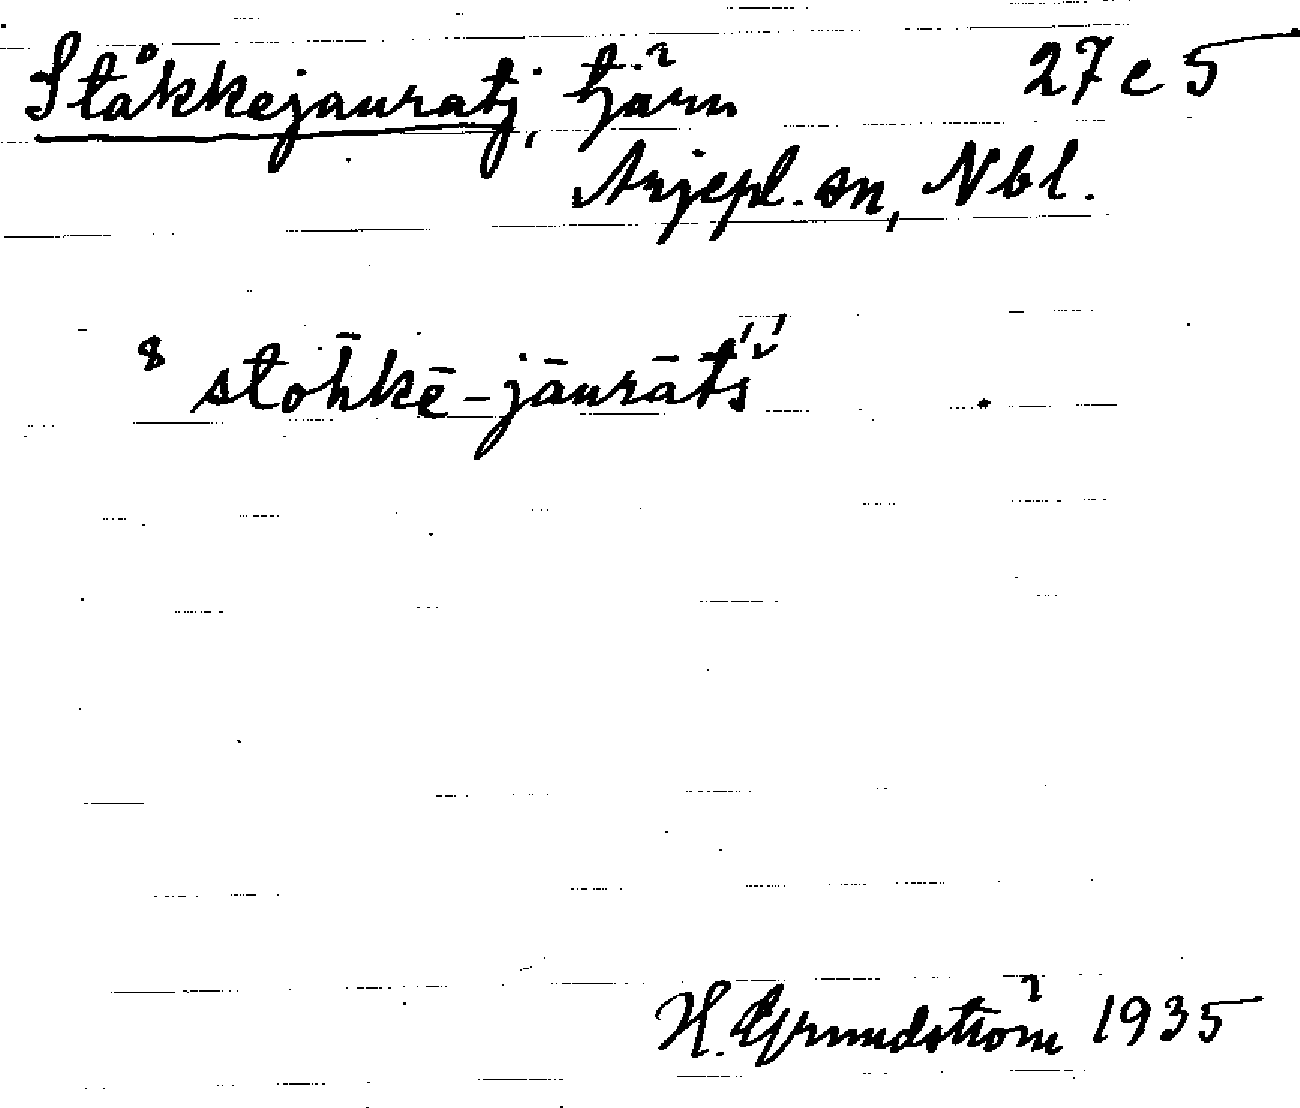 Ståkkejauratj, tjärn 27 c 5
Arjepl. sn, Nbl.
8 stoh̄kē-jāurāt́š́
H. Grundström 1935